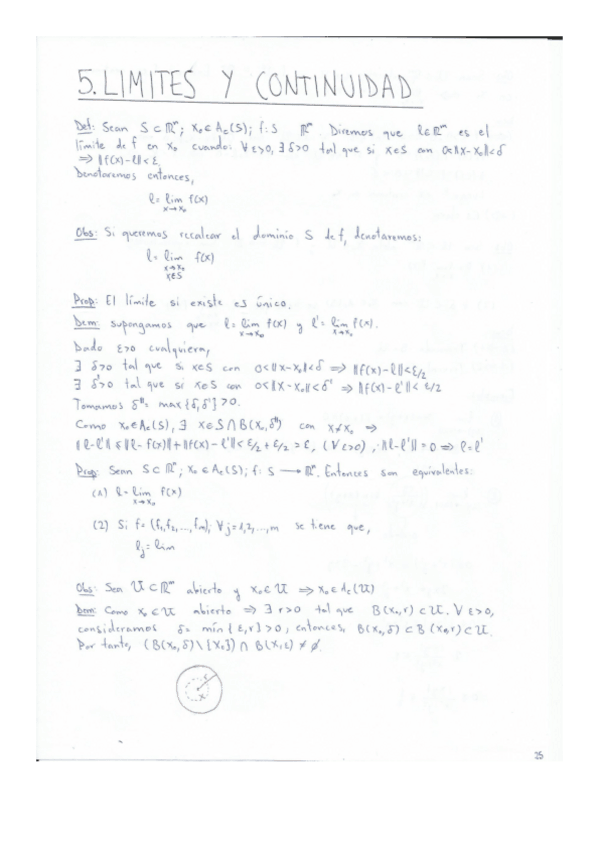 5. LIMITES Y CONTINUIDAD
Def: Sean S ⊂ ℝⁿ; x₀ ∈ Ac(S); f: S ℝᵐ. Diremos que l ∈ ℝᵐ es el
límite de f en x₀ cuando: ∀ε>0, ∃ δ>0 tal que si x∈S con 0<‖x-x₀‖<δ
⇒ ‖f(x)-l‖<ε.
Denotaremos entonces,
l = lim f(x)
x→x₀
Obs: Si queremos recalcar el dominio S de f, denotaremos:
l = lim f(x)
x→x₀
x∈S
Prop: El límite si existe es único.
Dem: supongamos que l = lim f(x) y l' = lim f(x).
x→x₀ x→x₀
Dado ε>0 cualquiera,
∃ δ>0 tal que si x∈S con 0<‖x-x₀‖<δ ⇒ ‖f(x)-l‖<ε/2
∃ δ'>0 tal que si x∈S con 0<‖x-x₀‖<δ' ⇒ ‖f(x)-l'‖<ε/2
Tomamos δ'' = max{δ,δ'}>0.
Como x₀∈Ac(S), ∃ x∈S∩B(x₀,δ'') con x≠x₀ ⇒
‖l-l'‖ ≤ ‖l-f(x)‖+‖f(x)-l'‖<ε/2+ε/2=ε, (∀ε>0), ‖l-l'‖=0 ⇒ l=l'
Prop: Sean S⊂ℝⁿ; x₀∈Ac(S); f: S → ℝᵐ. Entonces son equivalentes:
(1) l = lim f(x)
x→x₀
(2) Si f=(f₁,f₂,...,fₘ); ∀j=1,2,...,m se tiene que,
lⱼ = lim
Obs: Sea U⊂ℝⁿ abierto y x₀∈U ⇒ x₀∈Ac(U)
Dem: Como x₀∈U abierto ⇒ ∃ r>0 tal que B(x₀,r)⊂U. ∀ε>0,
consideramos δ = mín{ε,r}>0, entonces, B(x₀,δ)⊂B(x₀,r)⊂U.
Por tanto, (B(x₀,δ)\{x₀})∩B(x,ε)≠∅.
25